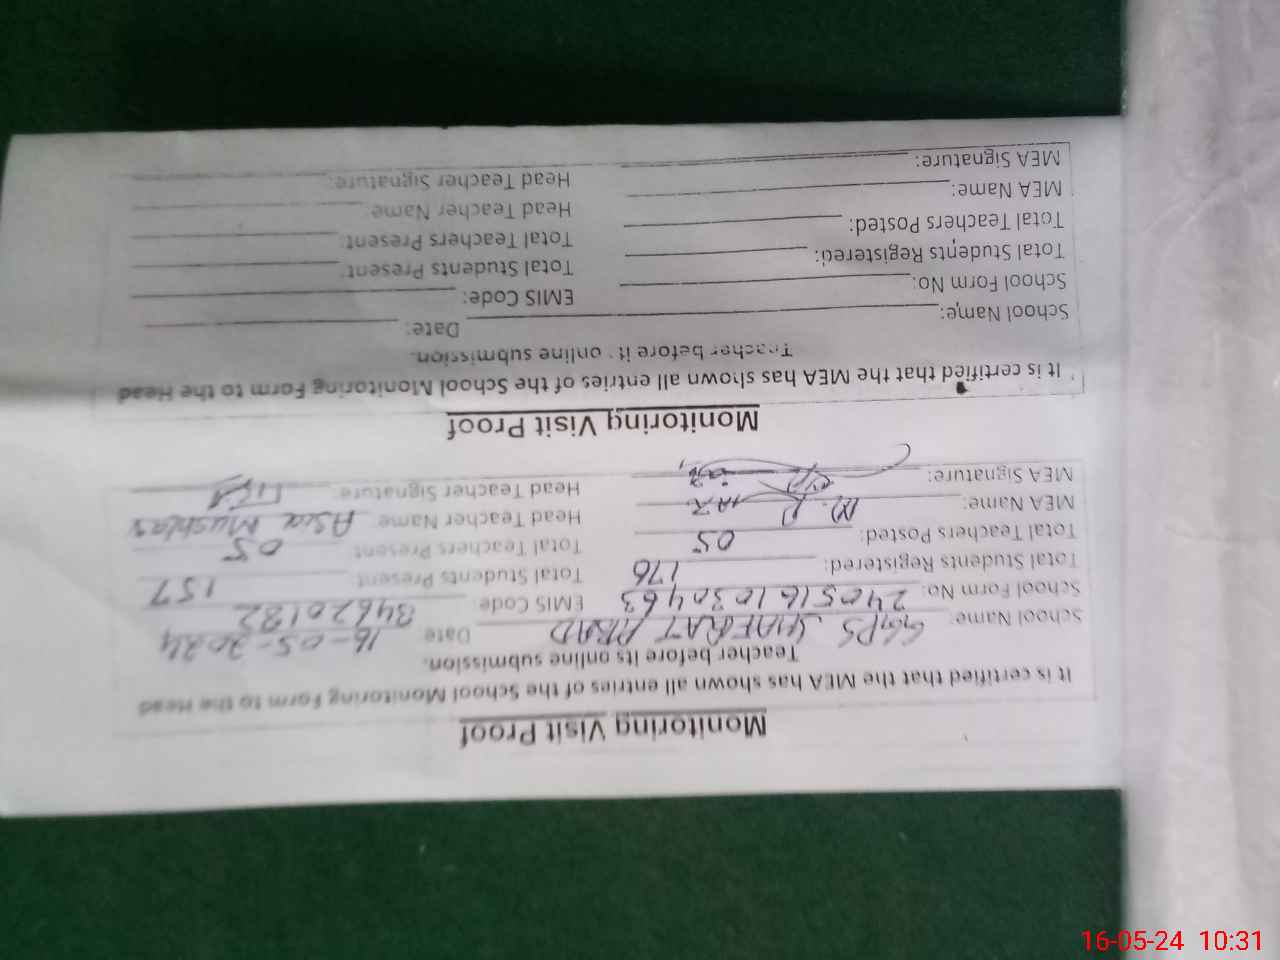 Monitoring Visit Proof
It is certified that the MEA has shown all entries of the School Monitoring Form to the Head
Teacher before its online submission.
School Name: GGPS SHAFQAT ABAD Date 16-05-2024
School Form No: 240516 1030463 EMIS Code: 34620182
Total Students Registered: 176 Total Students Present: 157
Total Teachers Posted: 05 Total Teachers Present: 05
MEA Name: Head Teacher Name: Asia Mushtaq
MEA Signature: Head Teacher Signature:
Monitoring Visit Proof
It is certified that the MEA has shown all entries of the School Monitoring Form to the Head
Teacher before its online submission.
School Name: Date:
School Form No: EMIS Code:
Total Students Registered: Total Students Present:
Total Teachers Posted: Total Teachers Present:
MEA Name: Head Teacher Name:
MEA Signature: Head Teacher Signature:
16-05-24 10:31